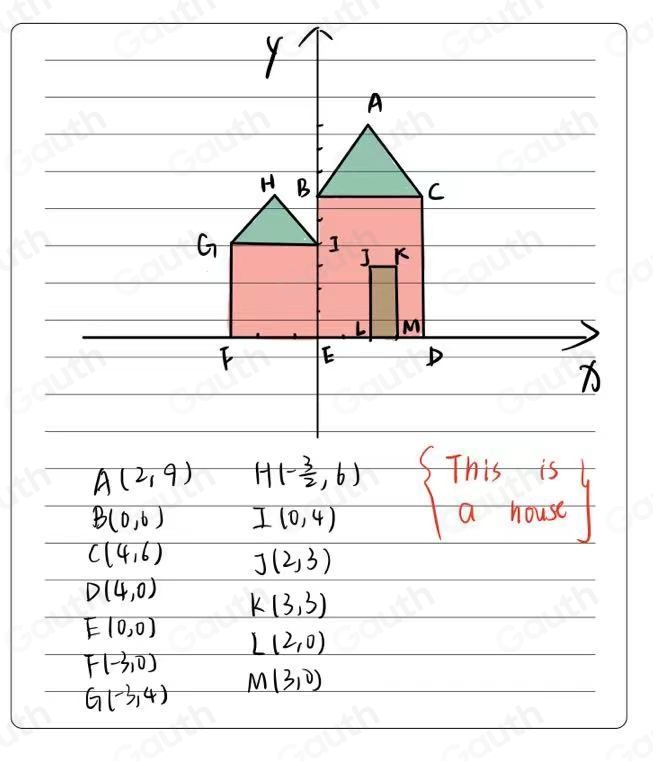 Y
A
H B C
G I
J K
L M
F E D
x
A(2,9) H(-3/2,6) {This is
B(0,6) I(0,4) a house}
C(4,6) J(2,3)
D(4,0) K(3,3)
E(0,0) L(2,0)
F(-3,0) M(3,0)
G(-3,4)
Gauth